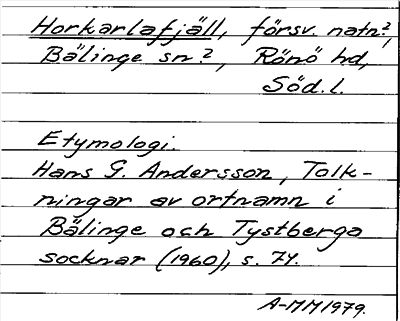 Horkarlafjäll, försv. natn?,
Bälinge sn?, Rönö hd,
Söd. l.
Etymologi.
Hans G. Andersson, Tolk-
ningar av ortnamn i
Bälinge och Tystberga
socknar (1960), s. 74.
A-MM1979.